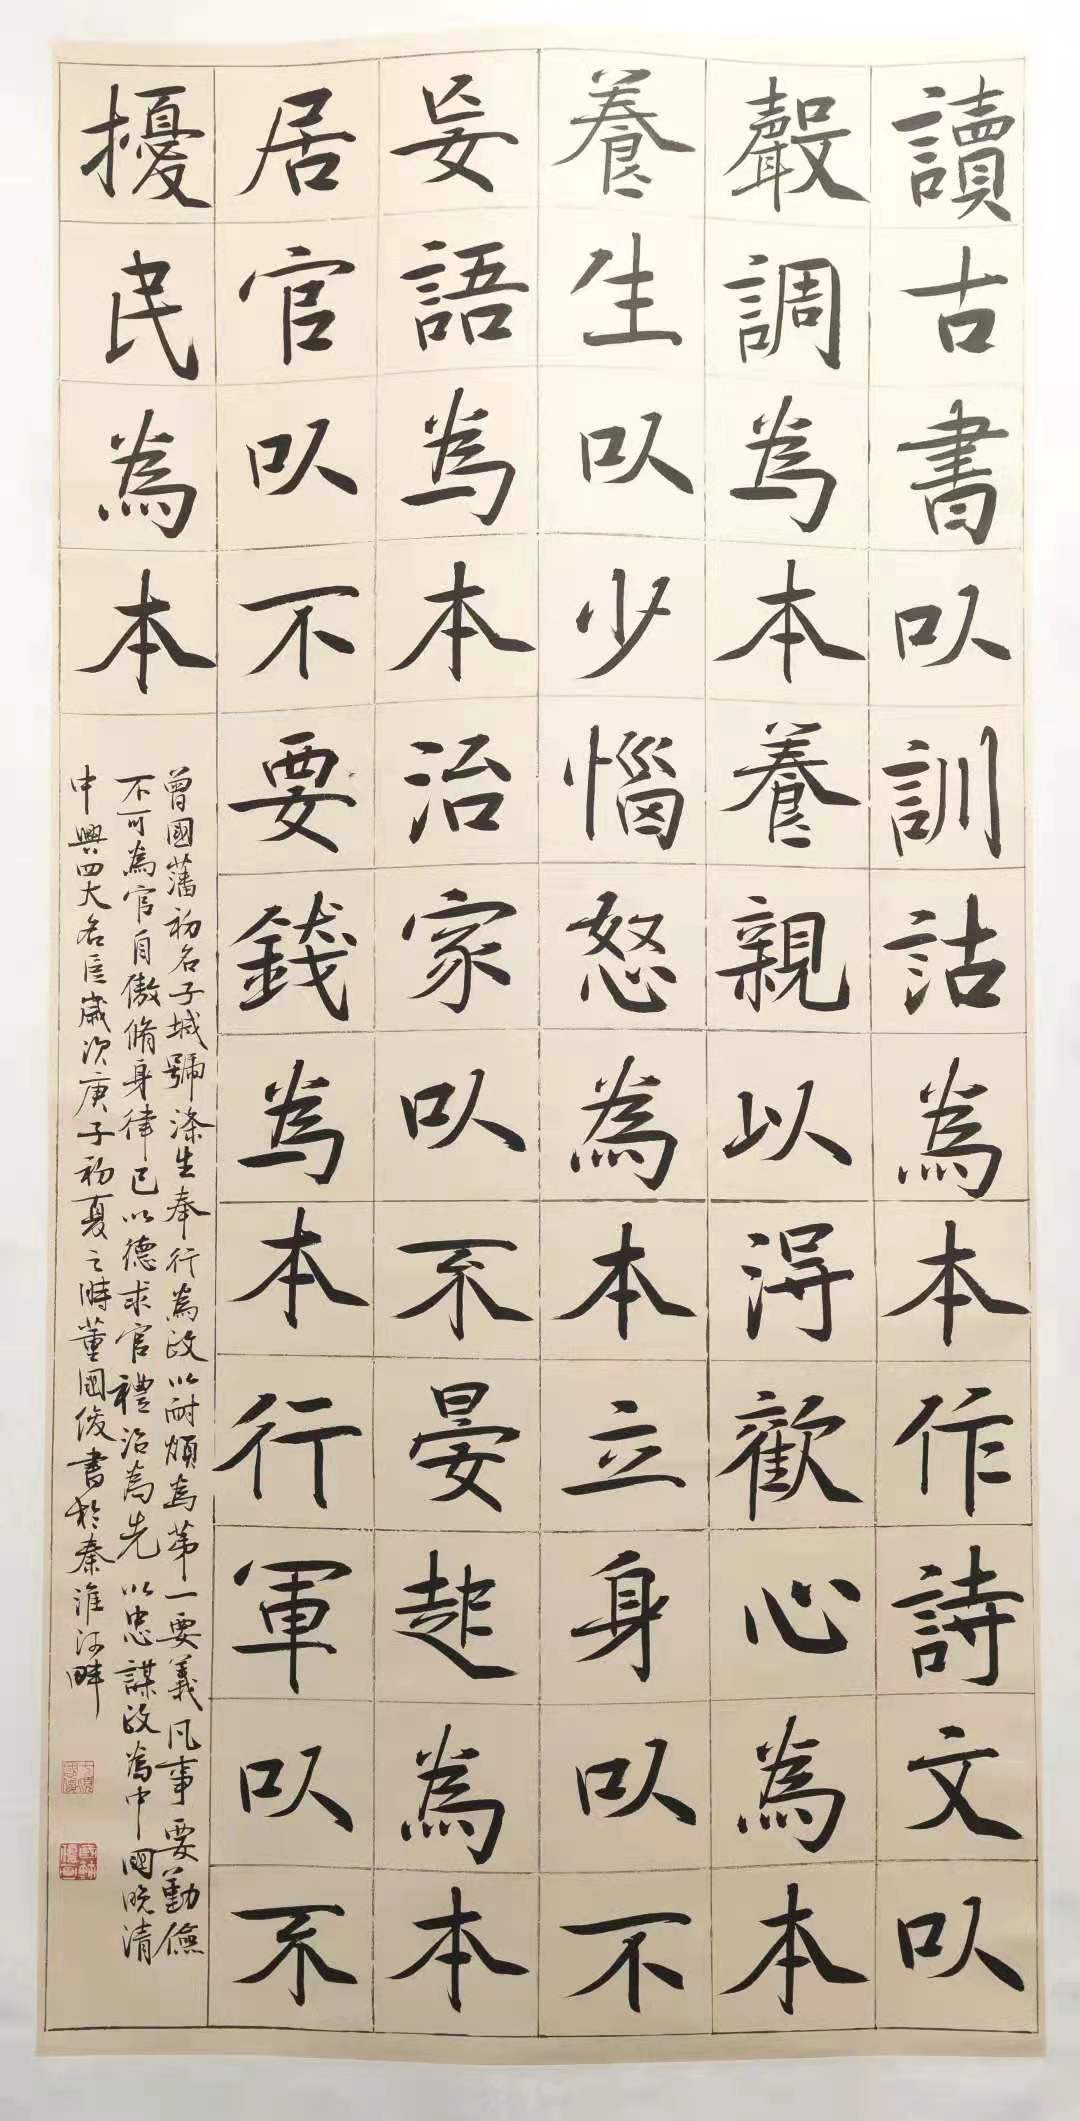 讀古書以訓詁為本作詩文以
聲調為本養親以得歡心為本
養生以少惱怒為本立身以不
妄語為本治家以不晏起為本
居官以不要錢為本行軍以不
擾民為本
曾國藩初名子城號滌生奉行為政以耐煩為第一要義凡事要勤儉
不可為官自傲脩身律己以德求官禮治為先以忠謀政為中國晚清
中興四大名臣歲次庚子初夏之時董國俊書於秦淮河畔